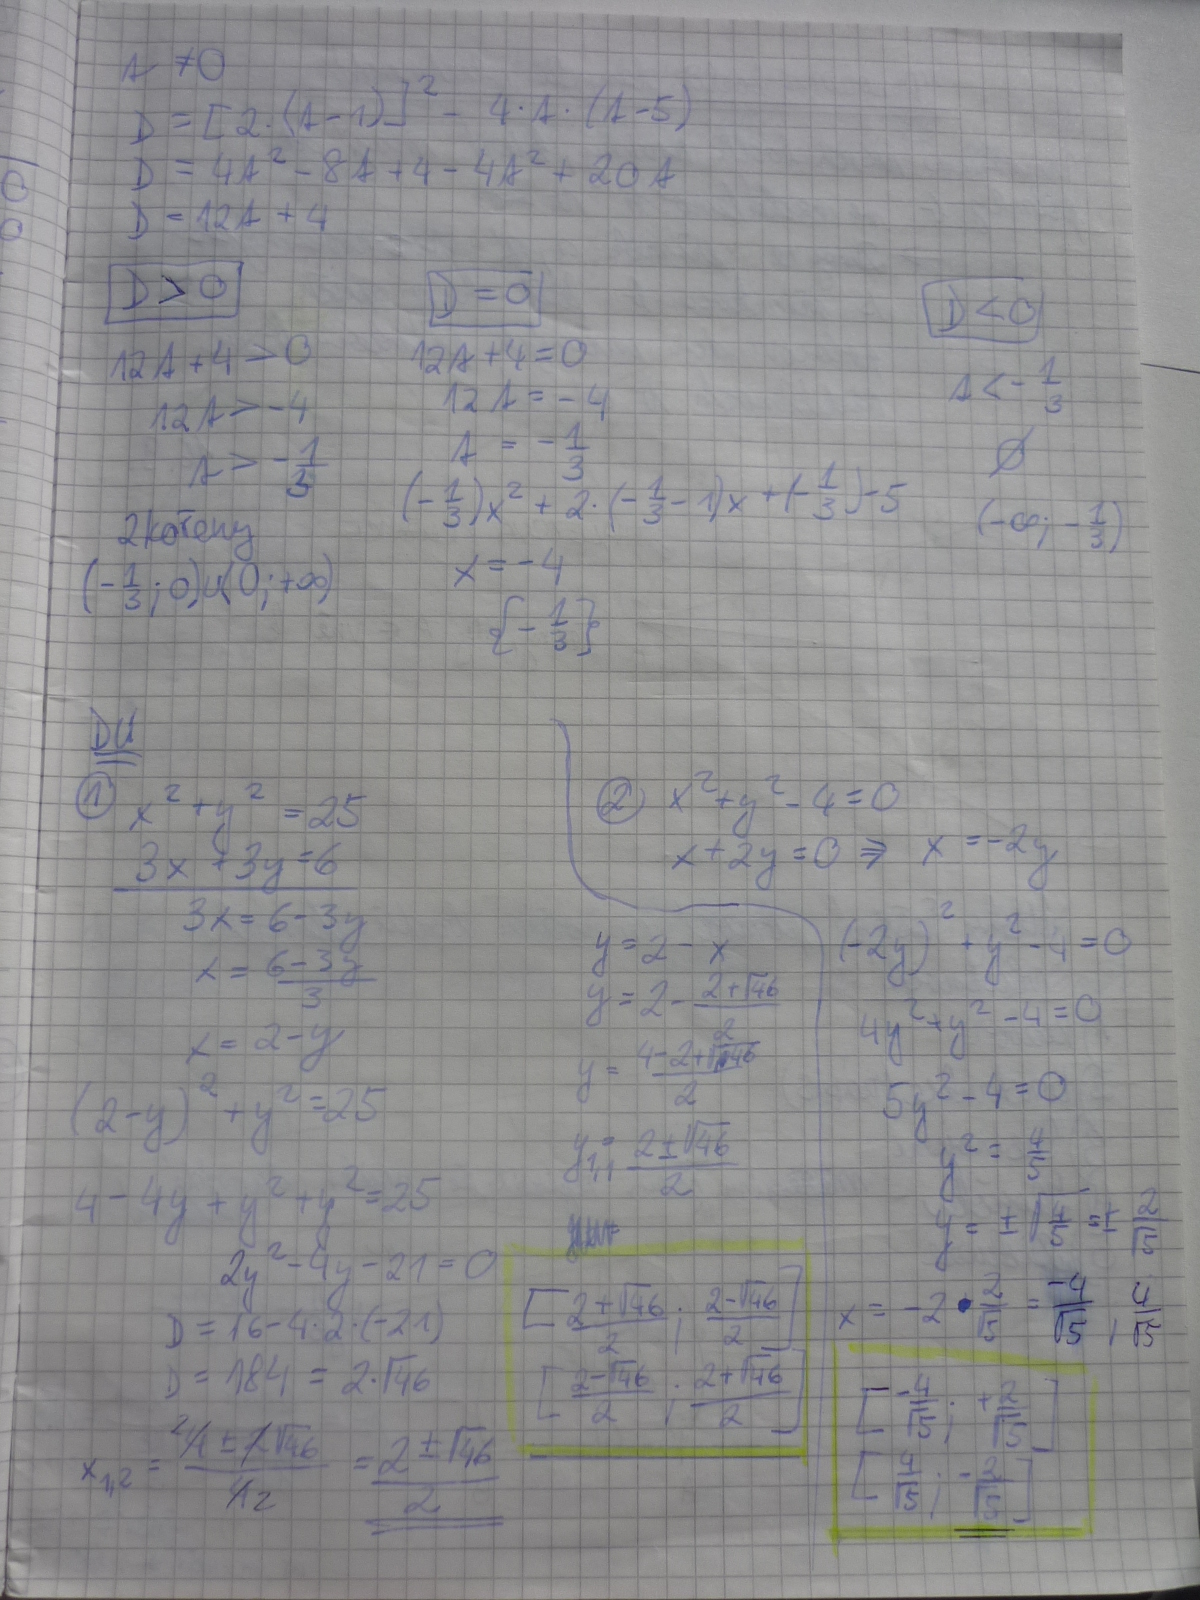 A ≠ 0
D = [2·(A-1)]² - 4·A·(A-5)
D = 4A² - 8A + 4 - 4A² + 20A
D = 12A + 4
D > 0
12A + 4 > 0
12A > -4
A > -1/3
2 kořeny
(-1/3; 0) ∪ (0; +∞)
D = 0
12A + 4 = 0
12A = -4
A = -1/3
(-1/3)x² + 2·(-1/3 - 1)x + (-1/3) - 5
x = -4
{-1/3}
D < 0
A < -1/3
∅
(-∞; -1/3)
DÚ
① x² + y² = 25
3x + 3y = 6
3x = 6 - 3y
x = (6-3y)/3
x = 2 - y
(2-y)² + y² = 25
4 - 4y + y² + y² = 25
2y² - 4y - 21 = 0
D = 16 - 4·2·(-21)
D = 184 = 2·√46
x₁,₂ = = (2±√46)/2
y = 2 - x
y = 2 - (2+√46)/2
y = (4-2+√46)/2
y₁,₁ = (2±√46)/2
[(2+√46)/2 ; (2-√46)/2]
[(2-√46)/2 ; (2+√46)/2]
② x² + y² - 4 = 0
x + 2y = 0 ⇒ x = -2y
(-2y)² + y² - 4 = 0
4y² + y² - 4 = 0
5y² - 4 = 0
y² = 4/5
y = ±√(4/5) = ± 2/√5
x = -2 · 2/√5 = -4/√5 , 4/√5
[-4/√5 ; +2/√5]
[4/√5 ; -2/√5]